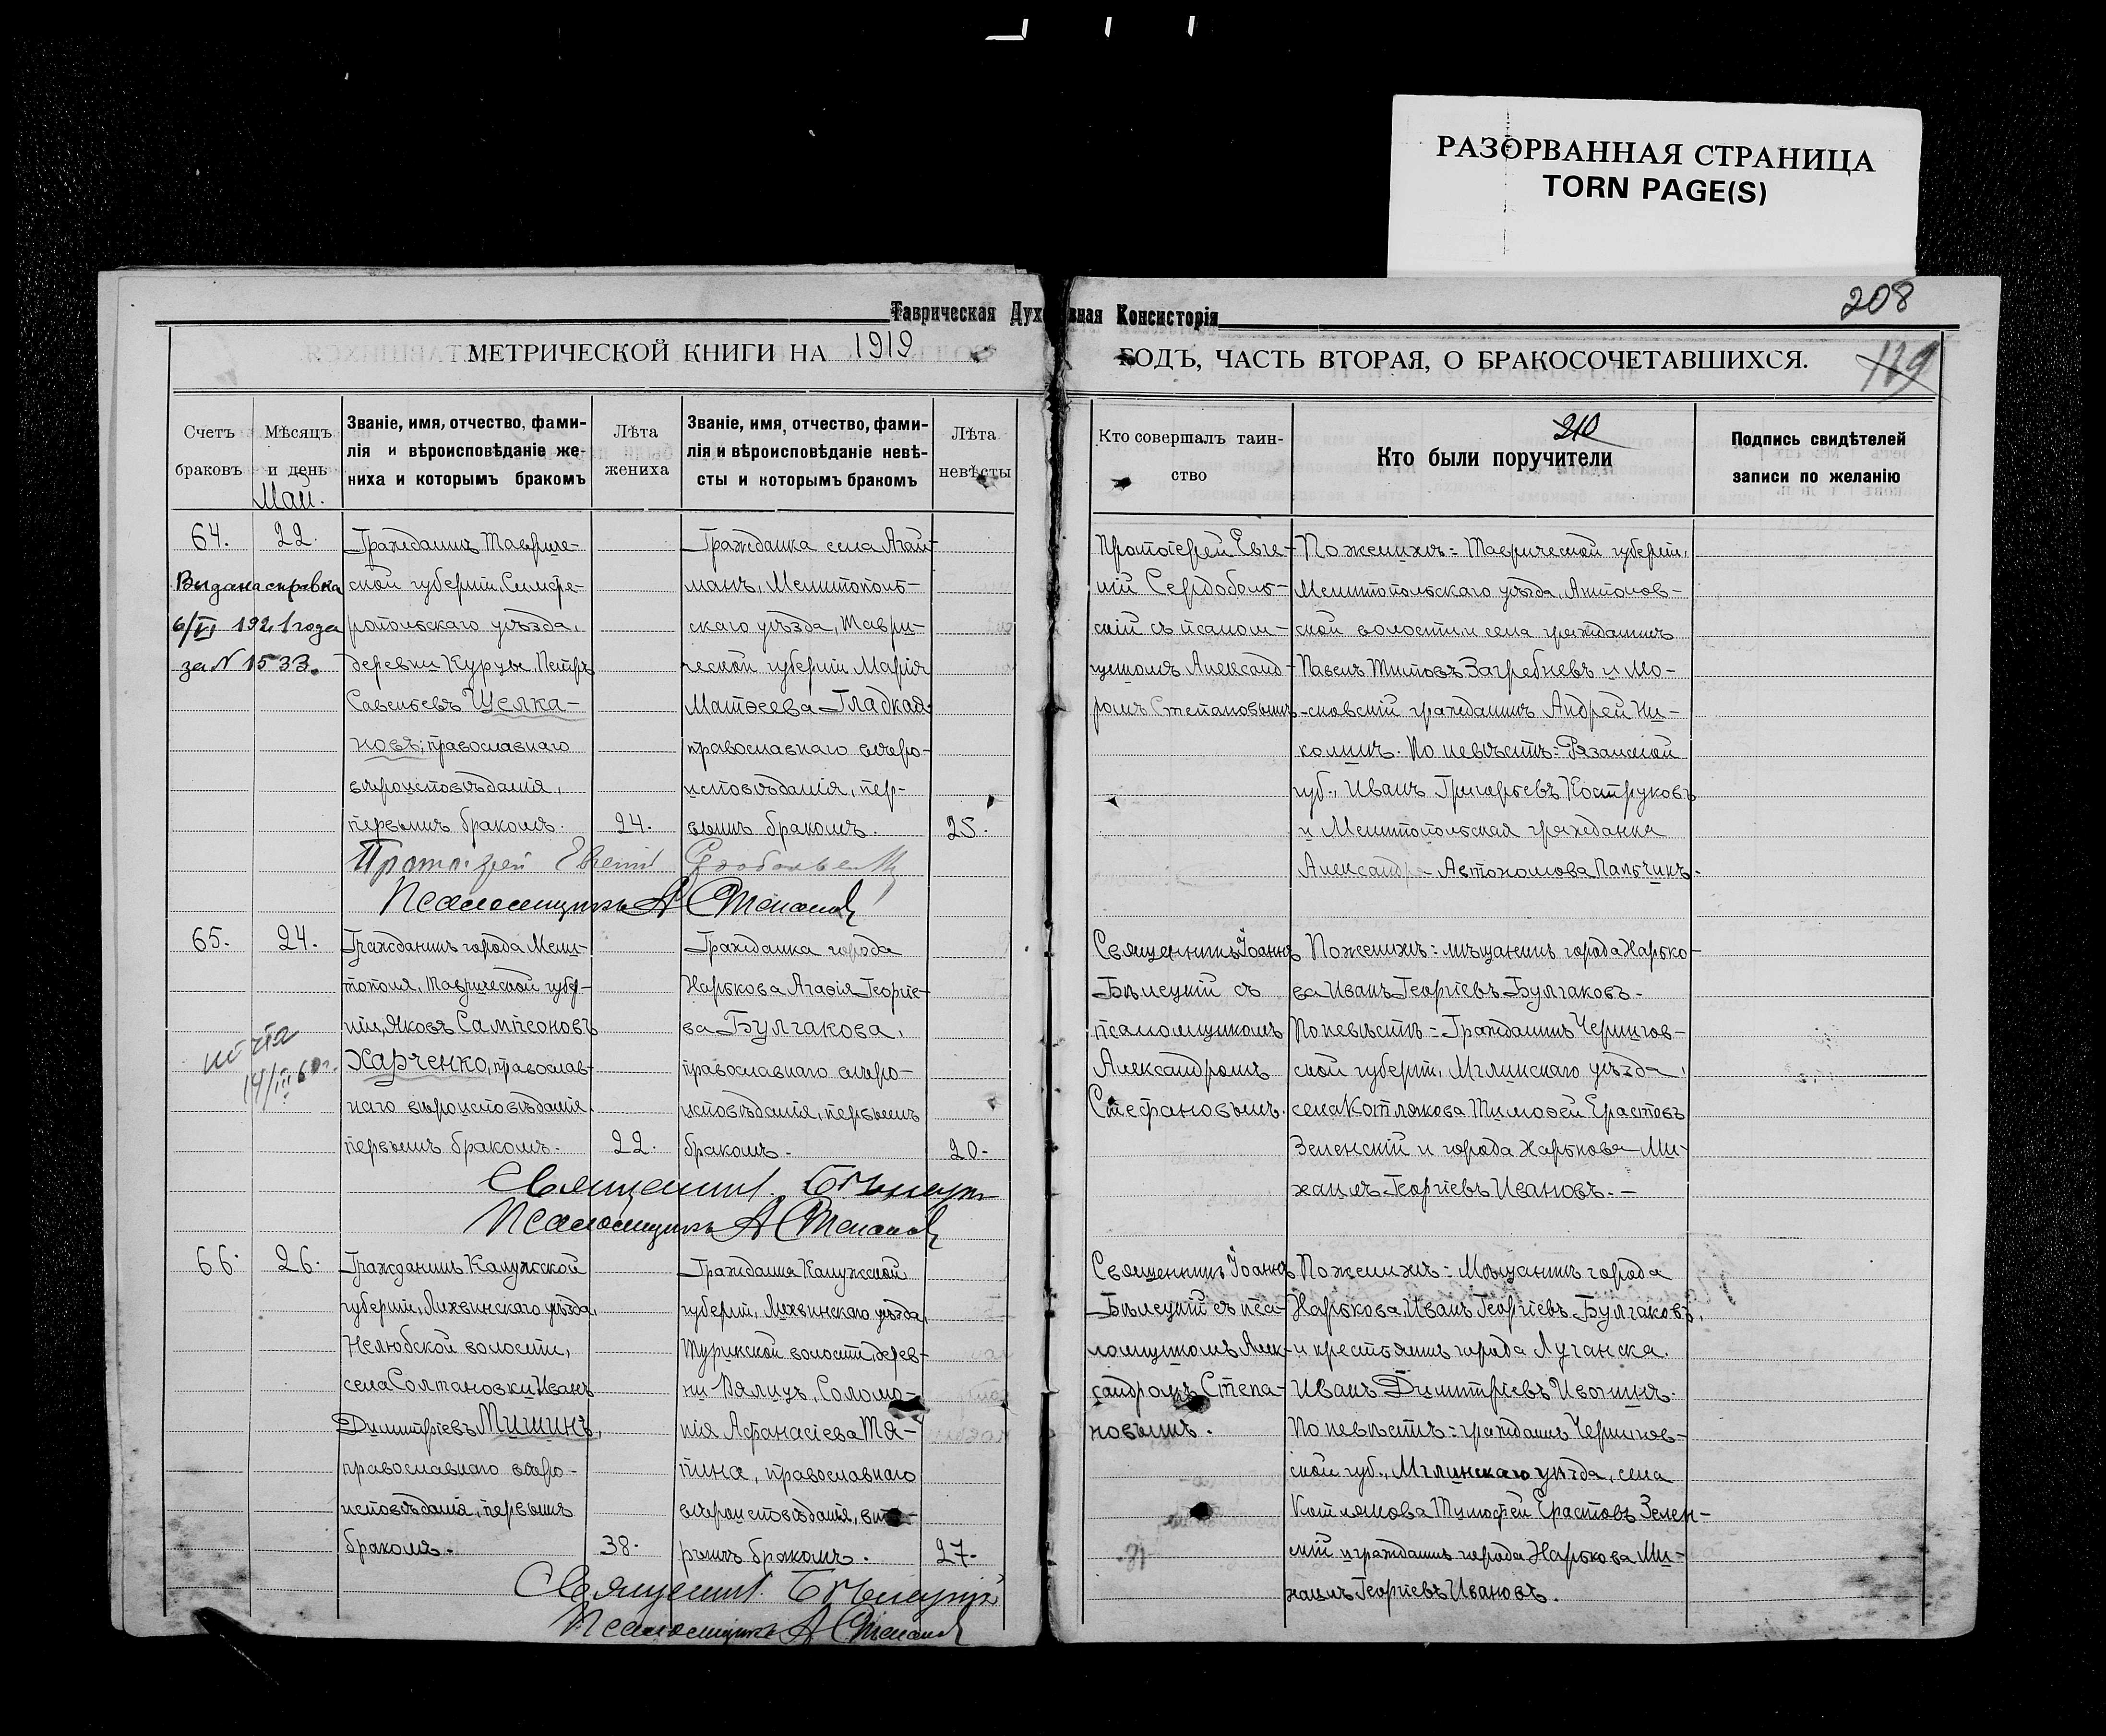 РАЗОРВАННАЯ СТРАНИЦА
TORN PAGE(S)
208
Таврическая Духовная Консисторія
МЕТРИЧЕСКОЙ КНИГИ НА 1919 ГОДЪ, ЧАСТЬ ВТОРАЯ, О БРАКОСОЧЕТАВШИХСЯ.
119
Счетъ браковъ
Мѣсяцъ и день
Званіе, имя, отчество, фами-
лія и вѣроисповѣданіе же-
ниха и которымъ бракомъ
Лѣта жениха
Званіе, имя, отчество, фами-
лія и вѣроисповѣданіе невѣ-
сты и которымъ бракомъ
Лѣта невѣсты
Кто совершалъ таин-
ство
210
Кто были поручители
Подпись свидѣтелей
записи по желанію
Май.
64.
22.
Выдана справка
6/VI 1921 года
за N 1533.
Гражданинъ Тавриче-
ской губерніи, Симфе-
ропольскаго уѣзда,
деревни Курувы Петръ
Савельевъ Щелка-
новъ; православнаго
вѣроисповѣданія,
первымъ бракомъ.
24.
Гражданка села Агай-
манъ, Мелитополь-
скаго уѣзда, Таври-
ческой губерніи Марія
Матѳеева Гладкая
православнаго вѣро-
исповѣданія, пер-
вымъ бракомъ.
25.
Протоіерей Евге-
ній Сердоболь-
скій съ псалом-
щикомъ Александ-
ромъ Степановымъ
По женихѣ: Таврической губерніи,
Мелитопольскаго уѣзда, Антонов-
ской волости и села гражданинъ
Павелъ Титовъ Загребневъ и Мо-
сковскій гражданинъ Андрей Ни-
колинъ. По невѣстѣ: Рязанской
губ., Иванъ Григорьевъ Коструковъ
и Мелитопольская гражданка
Александра Автономова Пальчикъ.
Протоіерей Евгеній Сердобольскій
Псаломщикъ А Степановъ
65.
24.
14/III 60г.
Гражданинъ города Мели-
тополя, Таврической губер-
ніи, Яковъ Сампсоновъ
Харченко, православ-
наго вѣроисповѣданія
первымъ бракомъ.
22.
Гражданка города
Харькова Агафія Георгіе-
ва Булгакова,
православнаго вѣро-
исповѣданія, первымъ
бракомъ.
20.
Священникъ Іоаннъ
Бѣлецкій съ
псаломщикомъ
Александромъ
Стефановымъ.
По женихѣ: мѣщанинъ города Харько-
ва Иванъ Георгіевъ Булгаковъ.
По невѣстѣ: Гражданинъ Чернигов-
ской губерніи, Мглинскаго уѣзда,
села Котлякова Тимоѳей Ерастовъ
Зеленскій и города Харькова Ми-
хаилъ Георгіевъ Ивановъ.
Священник. Бѣлецкій
Псаломщикъ А Степановъ
66.
26.
Гражданинъ Калужской
губерніи, Лихвинскаго уѣзда,
Нелюбской волости,
села Солтановки Иванъ
Димитріевъ Мишинъ,
православнаго вѣро-
исповѣданія, первымъ
бракомъ.
38.
Гражданка Калужской
губерніи, Лихвинскаго уѣзда,
Туринской волости, дерев-
ни Вялицъ, Соломо-
нія Афанасіева Тя-
пина, православнаго
вѣроисповѣданія, вто-
рымъ бракомъ.
27.
Священникъ Іоаннъ
Бѣлецкій съ пса-
ломщикомъ Алек-
сандромъ Степа-
новымъ.
По женихѣ: Мѣщанинъ города
Харькова Иванъ Георгіевъ Булгаковъ,
и крестьянинъ города Луганска.
Иванъ Димитріевъ Ивогинъ.
По невѣстѣ: гражданинъ Чернигов-
ской губ., Мглинскаго уѣзда, села
Котлякова Тимофей Ерастовъ Зелен-
скій и гражданинъ города Харькова Ми-
хаилъ Георгіевъ Ивановъ.
Священник. Бѣлецкій
Псаломщикъ А Степановъ